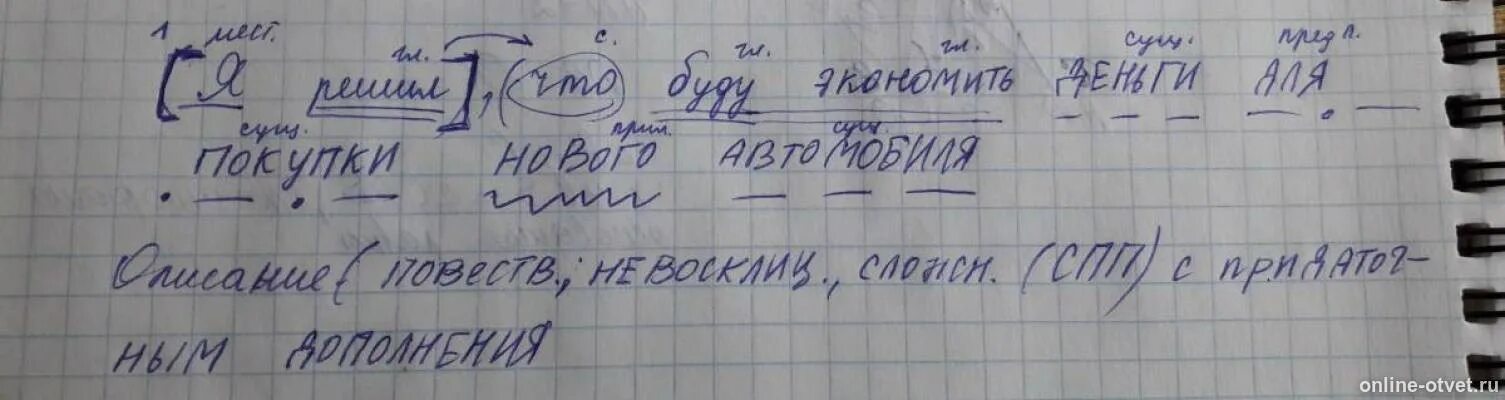 1 мест. гл. с. гл. гл. сущ. предл.
[Я решил], (что буду экономить деньги для
сущ. прил. сущ.
покупки нового автомобиля
Описание (повеств.; невосклиц., сложн. (СПП) с придаточ-
ным дополнения
online-otvet.ru